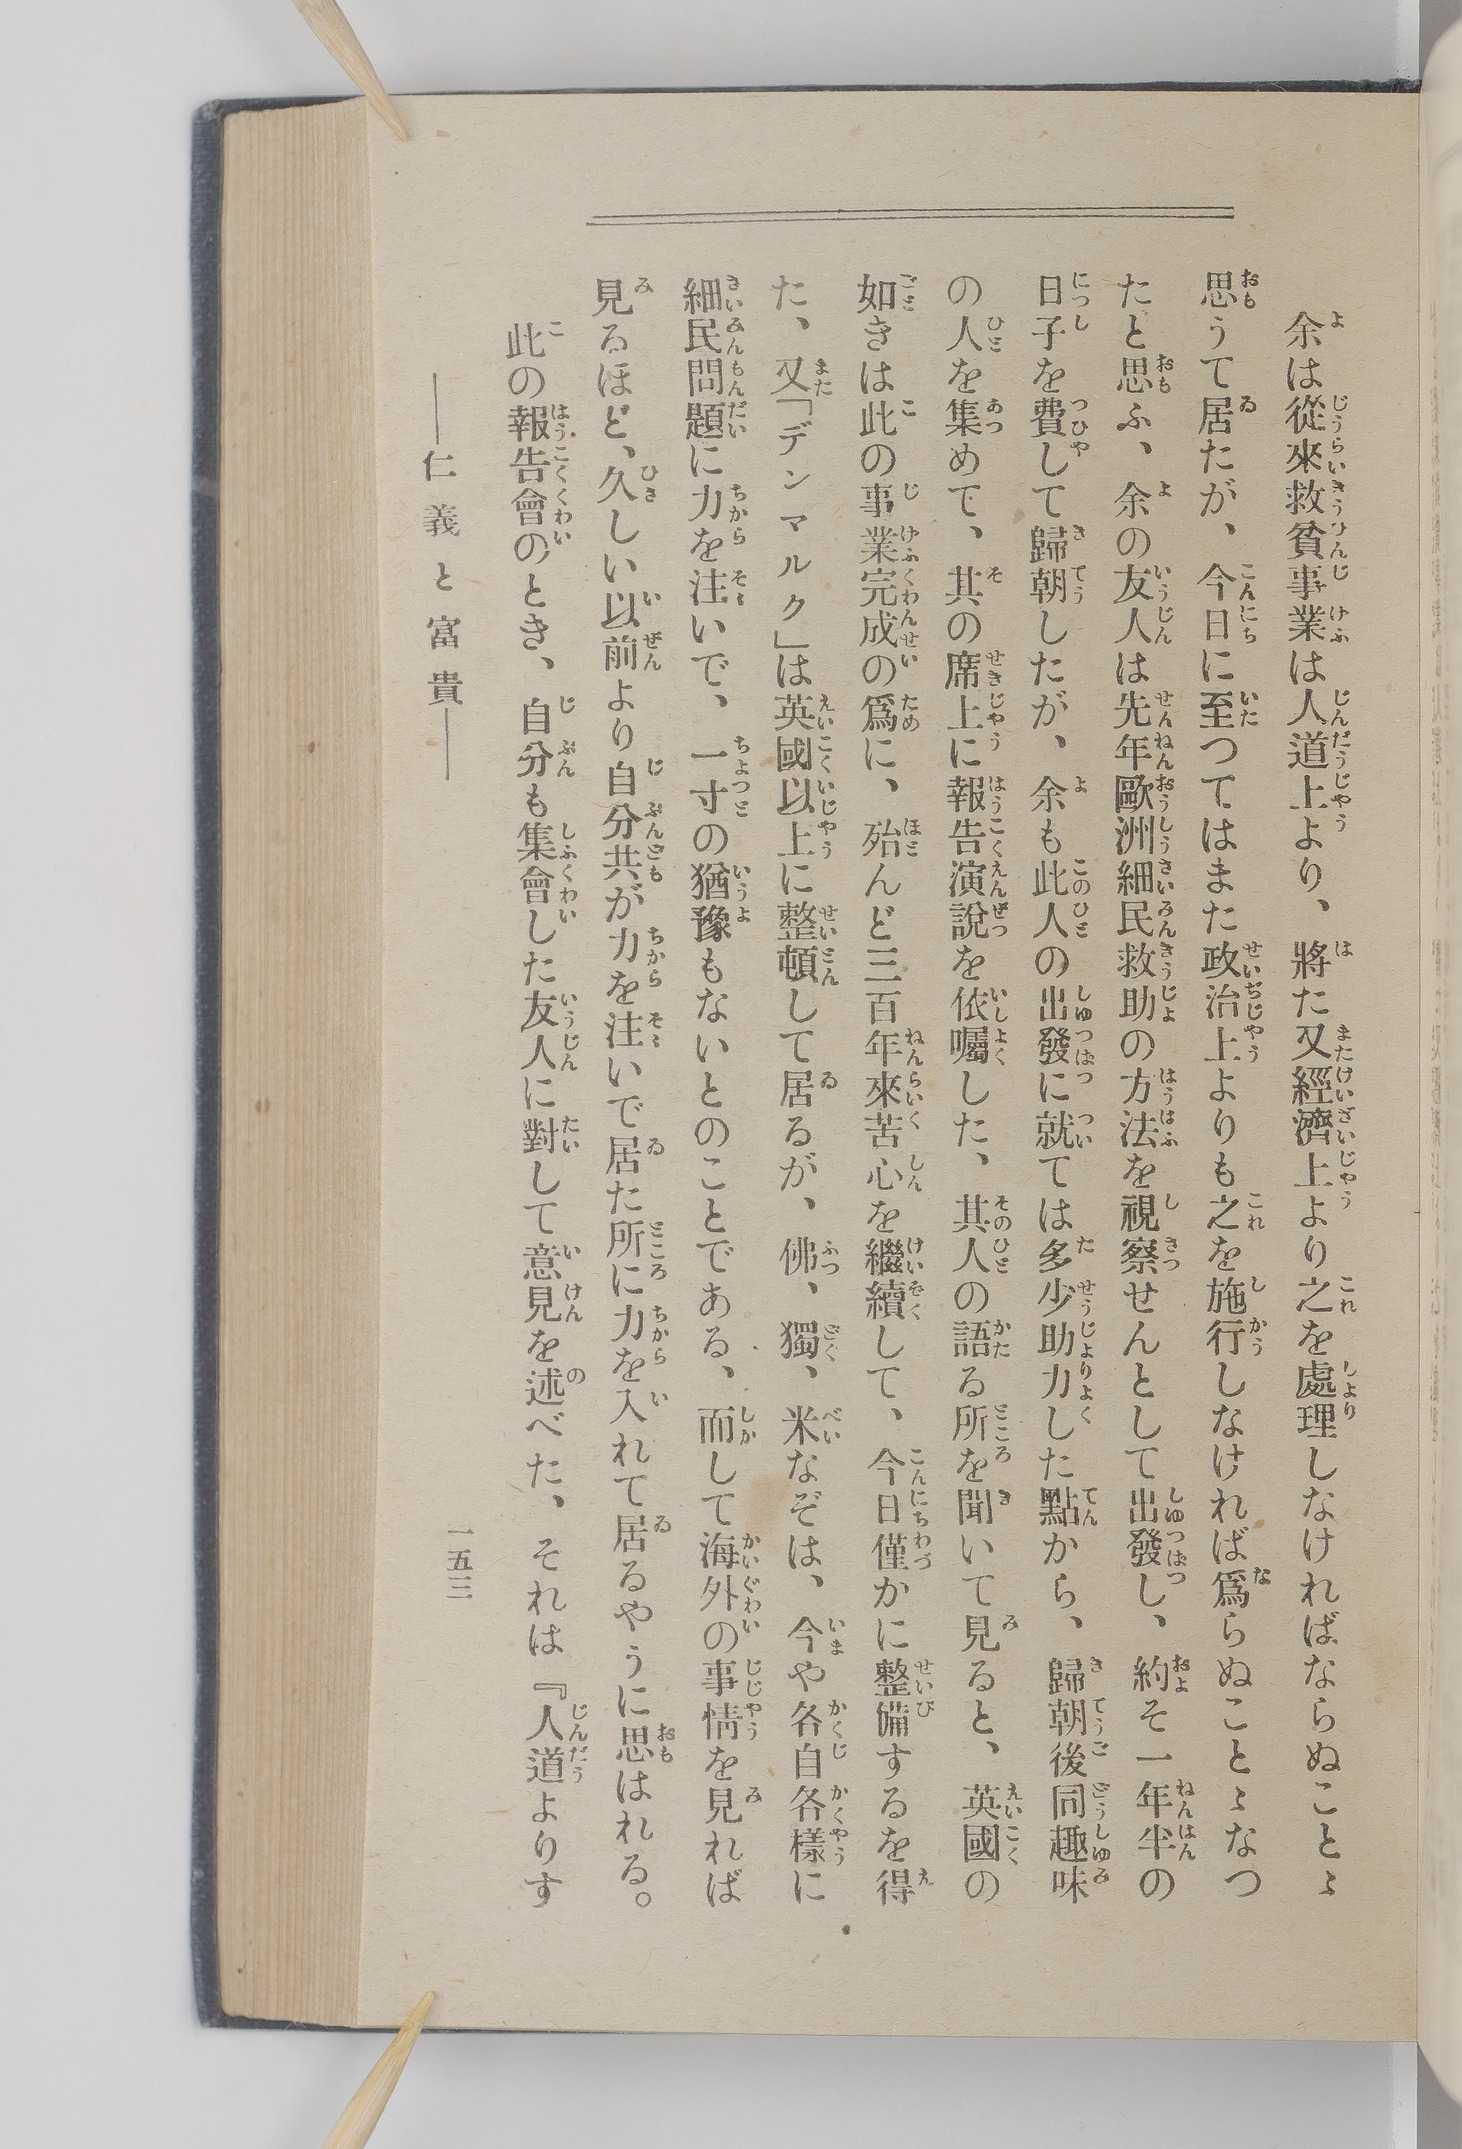 余は從來救貧事業は人道上より、將た又經濟上より之を處理しなければならぬことゝ
思うて居たが、今日に至つてはまた政治上よりも之を施行しなければ爲らぬことゝなつ
たと思ふ、余の友人は先年歐洲細民救助の方法を視察せんとして出發し、約そ一年半の
日子を費して歸朝したが、余も此人の出發に就ては多少助力した點から、歸朝後同趣味
の人を集めて、其の席上に報告演說を依囑した、其人の語る所を聞いて見ると、英國の
如きは此の事業完成の爲めに、殆んど三百年來苦心を繼續して、今日僅かに整備するを得
た、又「デンマルク」は英國以上に整頓して居るが、佛、獨、米なぞは、今や各自各樣に
細民問題に力を注いで、一寸の猶豫もないとのことである、而して海外の事情を見れば
見るほど、久しい以前より自分共が力を注いで居た所に力を入れて居るやうに思はれる。
此の報告會のとき、自分も集會した友人に對して意見を述べた、それは『人道よりす
――仁義と富貴――
一五三